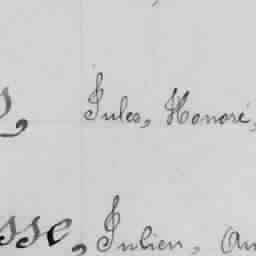 Jules, Honoré,
sse, Julien,